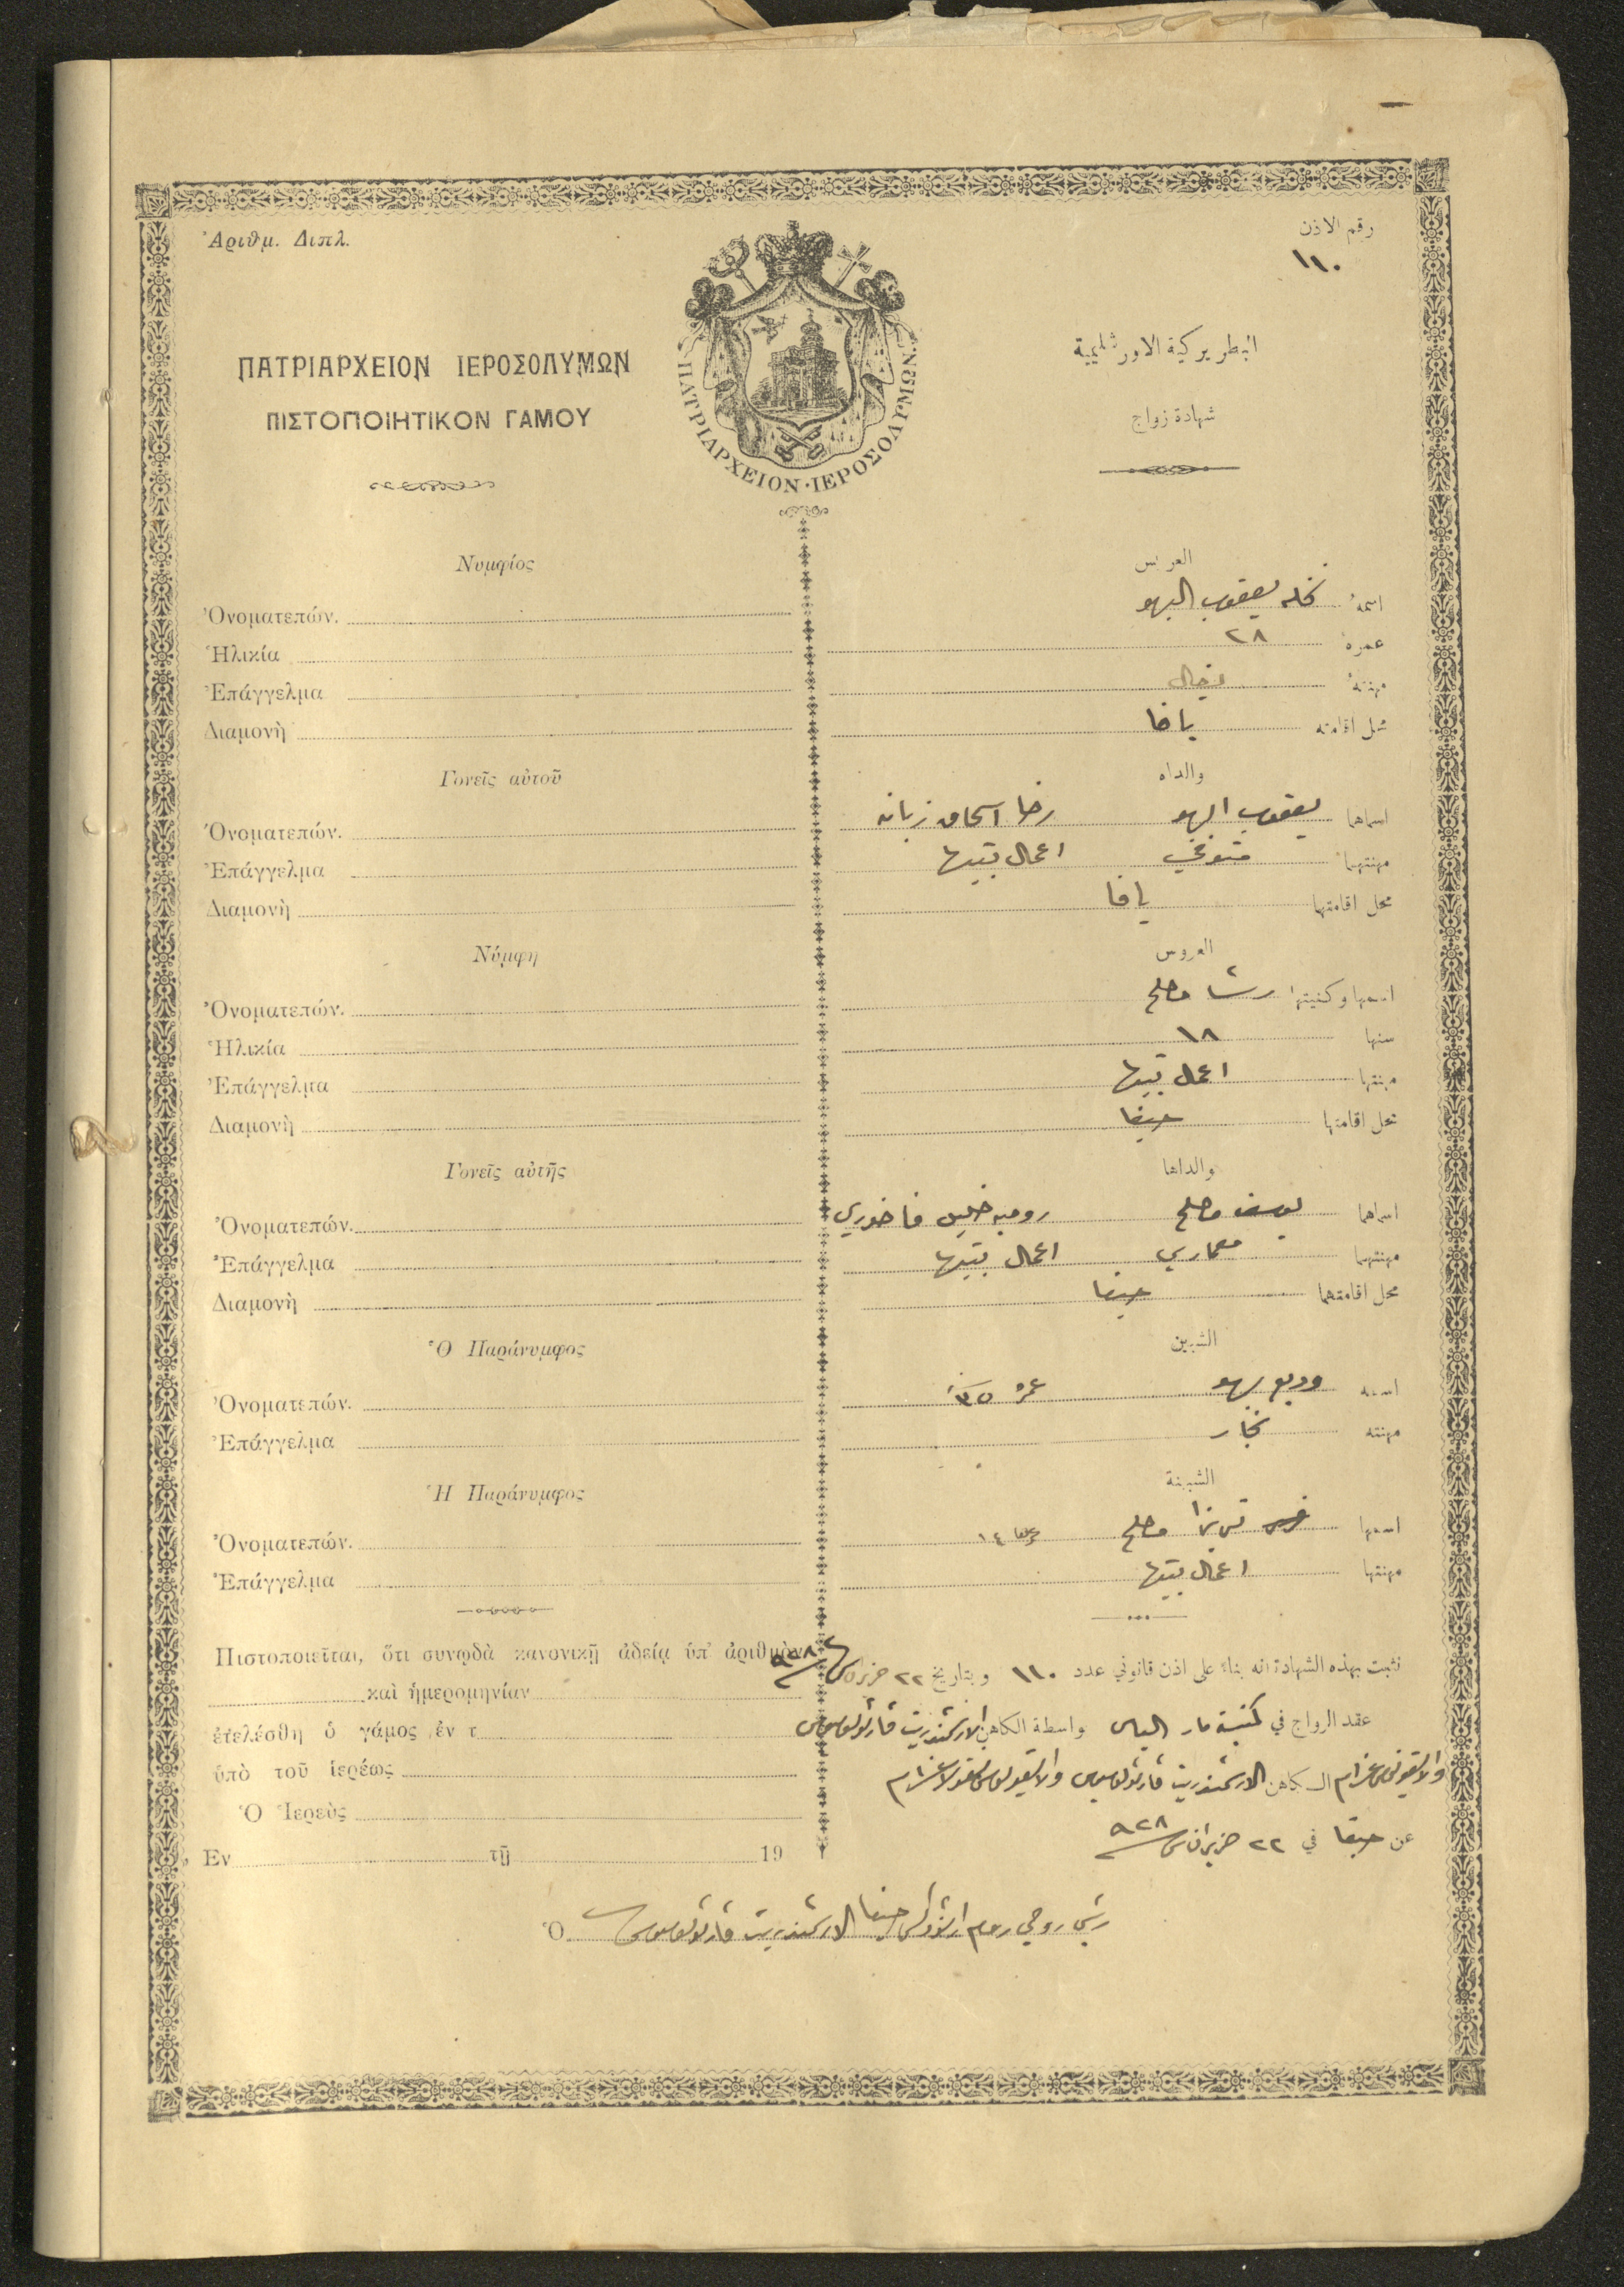 Ἀριθμ. Διπλ.
رقم الاذن
١١٠
ΠΑΤΡΙΑΡΧΕΙΟΝ ΙΕΡΟΣΟΛΥΜΩΝ
البطريركية الاورشليمية
ΠΙΣΤΟΠΟΙΗΤΙΚΟΝ ΓΑΜΟΥ
شهادة زواج
ΠΑΤΡΙΑΡΧΕΙΟΝ·ΙΕΡΟΣΟΛΥΜΩΝ·
Νυμφίος
العريس
Ὀνοματεπών.
اسمهُ نخله يعقوب البهو
Ἡλικία
عمره ٢٨
Ἐπάγγελμα
مهنتهُ
Διαμονὴ
محل اقامته يافا
Γονεῖς αὐτοῦ
والداه
Ὀνοματεπών.
اسماهما يعقوب البهو اسحاق زبانه
Ἐπάγγελμα
مهنتهما متوفي اعمال بيتها
Διαμονὴ
محل اقامتهما يافا
Νύμφη
العروس
Ὀνοματεπών.
اسمها وكنيتها رشا مصلح
Ἡλικία
سنها ١٨
Ἐπάγγελμα
مهنتها اعمال بيتها
Διαμονὴ
محل اقامتها حيفا
Γονεῖς αὐτῆς
والداها
Ὀνοματεπών.
اسماهما يوسف مصلح روميه خليل فاخوري
Ἐπάγγελμα
مهنتهما معماري اعمال بيتها
Διαμονὴ
محل اقامتهما حيفا
Ὁ Παράνυμφος
الشبين
Ὀνοματεπών.
اسمه وديع بهو عمره ٣٥
Ἐπάγγελμα
مهنته نجار
Ἡ Παράνυμφος
الشبينة
Ὀνοματεπών.
اسمها مصلح عمرها ١٤
Ἐπάγγελμα
مهنتها اعمال بيتها
Πιστοποιεῖται, ὅτι συνῳδὰ κανονικῇ ἀδείᾳ ὑπ' ἀριθμὸν
καὶ ἡμερομηνίαν
ἐτελέσθη ὁ γάμος ἐν τ
ὑπὸ τοῦ ἱερέως
Ὁ Ἱερεὺς
Ἐν τῇ 19
نثبت بهذه الشهادة انه بناءً على اذن قانوني عدد ١١٠ وبتاريخ ٢٢ حزيران سنة ٩٢٨
عقد الزواج في كنيسة مار الياس واسطة الكاهن الارشمندريت
الكاهن الارشمندريت
عن حيفا في ٢٢ حزيران سنة ٩٢٨
Ὁ رئيس روحي روم ارثوذكس حيفا الارشمندريت